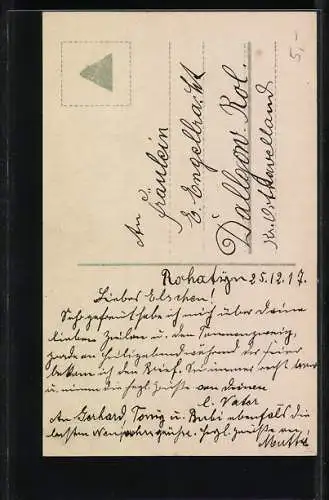 5,-
An
Fräulein
E. Engelbracht
Dallgow. Rol.
Kr. Osthavelland
Rohatyn 25.12.17.
Liebes Elschen!
Sehr gefreut habe ich mich über deine
lieben Zeilen u. den Tannenzweig,
gerade am heiligabend während der Feier
bekam ich den Brief. Sei immer recht brav
u. nimm die hzgl. Grüße von deinem
l. Vater
An Gerhard, u. Bubi ebenfalls die
besten Neujahrsgrüße. Herzl. Grüße an
Mutti